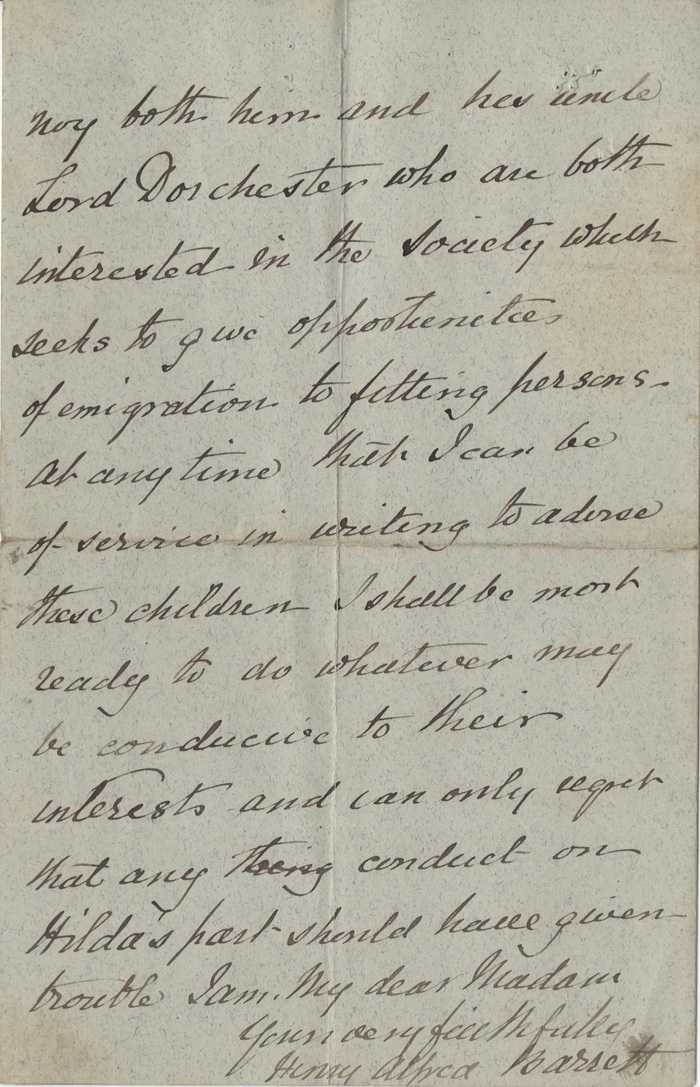 both him and his uncle
Lord Dorchester who are both
interested in the Society which
seeks to give opportunities
of emigration to fitting persons.
At any time that I can be
of service in writing to advise
these children I shall be most
ready to do whatever may
be conducive to their
interests and can only regret
that any thing conduct on
Hilda's part should have given
trouble I am. My dear Madam
Yours very faithfully
Henry Alfred Barrett